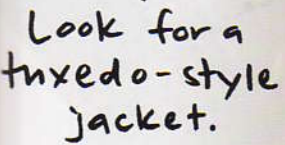 Look for a
tuxedo-style
jacket.